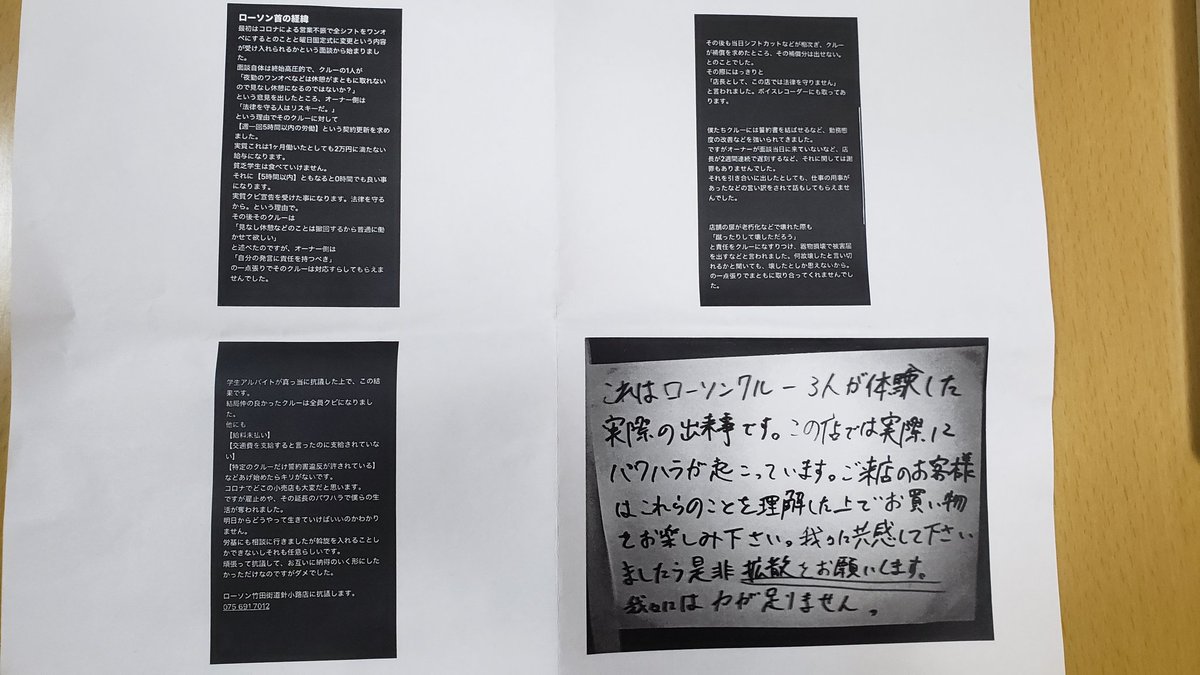 ローソン首の経緯
最初はコロナによる営業不振で全シフトをワンオ
ペにするとのことと曜日固定式に変更という内容
が受け入れられるかという面談から始まりまし
た。
面談自体は終始高圧的で、クルーの1人が
「夜勤のワンオペなどは休憩がまともに取れない
ので見なし休憩になるのではないか？」
という意見を出したところ、オーナー側は
「法律を守る人はリスキーだ。」
という理由でそのクルーに対して
【週一回5時間以内の労働】という契約更新を求め
ました。
実質これは1ヶ月働いたとしても2万円に満たない
給与になります。
貧乏学生は食べていけません。
それに【5時間以内】ともなると0時間でも良い事
になります。
実質クビ宣告を受けた事になります。法律を守る
から。という理由で。
その後そのクルーは
「見なし休憩などのことは撤回するから普通に働
かせて欲しい」
と述べたのですが、オーナー側は
「自分の発言に責任を持つべき」
の一点張りでそのクルーは対応すらしてもらえま
せんでした。
その後も当日シフトカットなどが相次ぎ、クルー
が補償を求めたところ、その補償分は出せない。
とのことでした。
その際にはっきりと
「店長として、この店では法律を守りません」
と言われました。ボイスレコーダーにも取ってあ
ります。
僕たちクルーには誓約書を結ばせるなど、勤務態
度の改善などを強いられてきました。
ですがオーナーが面談当日に来ていないなど、店
長が2週間連続で遅刻するなど、それに関しては謝
罪もありませんでした。
それを引き合いに出したとしても、仕事の用事が
あったなどの言い訳をされて話もしてもらえませ
んでした。
店舗の扉が老朽化などで壊れた際も
「蹴ったりして壊しただろう」
と責任をクルーになすりつけ、器物損壊で被害届
を出すなどと言われました。何故壊したと言い切
れるかと聞いても、壊したとしか思えないから。
の一点張りでまともに取り合ってくれませんでし
た。
学生アルバイトが真っ当に抗議した上で、この結
果です。
結局仲の良かったクルーは全員クビになりまし
た。
他にも
【給料未払い】
【交通費を支給すると言ったのに支給されていな
い】
【特定のクルーだけ誓約書違反が許されている】
などあげ始めたらキリがないです。
コロナでどこの小売店も大変だと思います。
ですが雇止めや、その延長のパワハラで僕らの生
活が奪われました。
明日からどうやって生きていけばいいのかわかり
ません。
労基にも相談に行きましたが斡旋を入れることし
かできないしそれも任意らしいです。
頑張って抗議して、お互いに納得のいく形にした
かっただけなのですがダメでした。
ローソン竹田街道針小路店に抗議します。
075 691 7012
これはローソンクルー3人が体験した
実際の出来事です。この店では実際に
パワハラが起こっています。ご来店のお客様
はこれらのことを理解した上でお買い物
をお楽しみ下さい。我々に共感して下さい
ましたら是非拡散をお願いします。
我々には力が足りません。